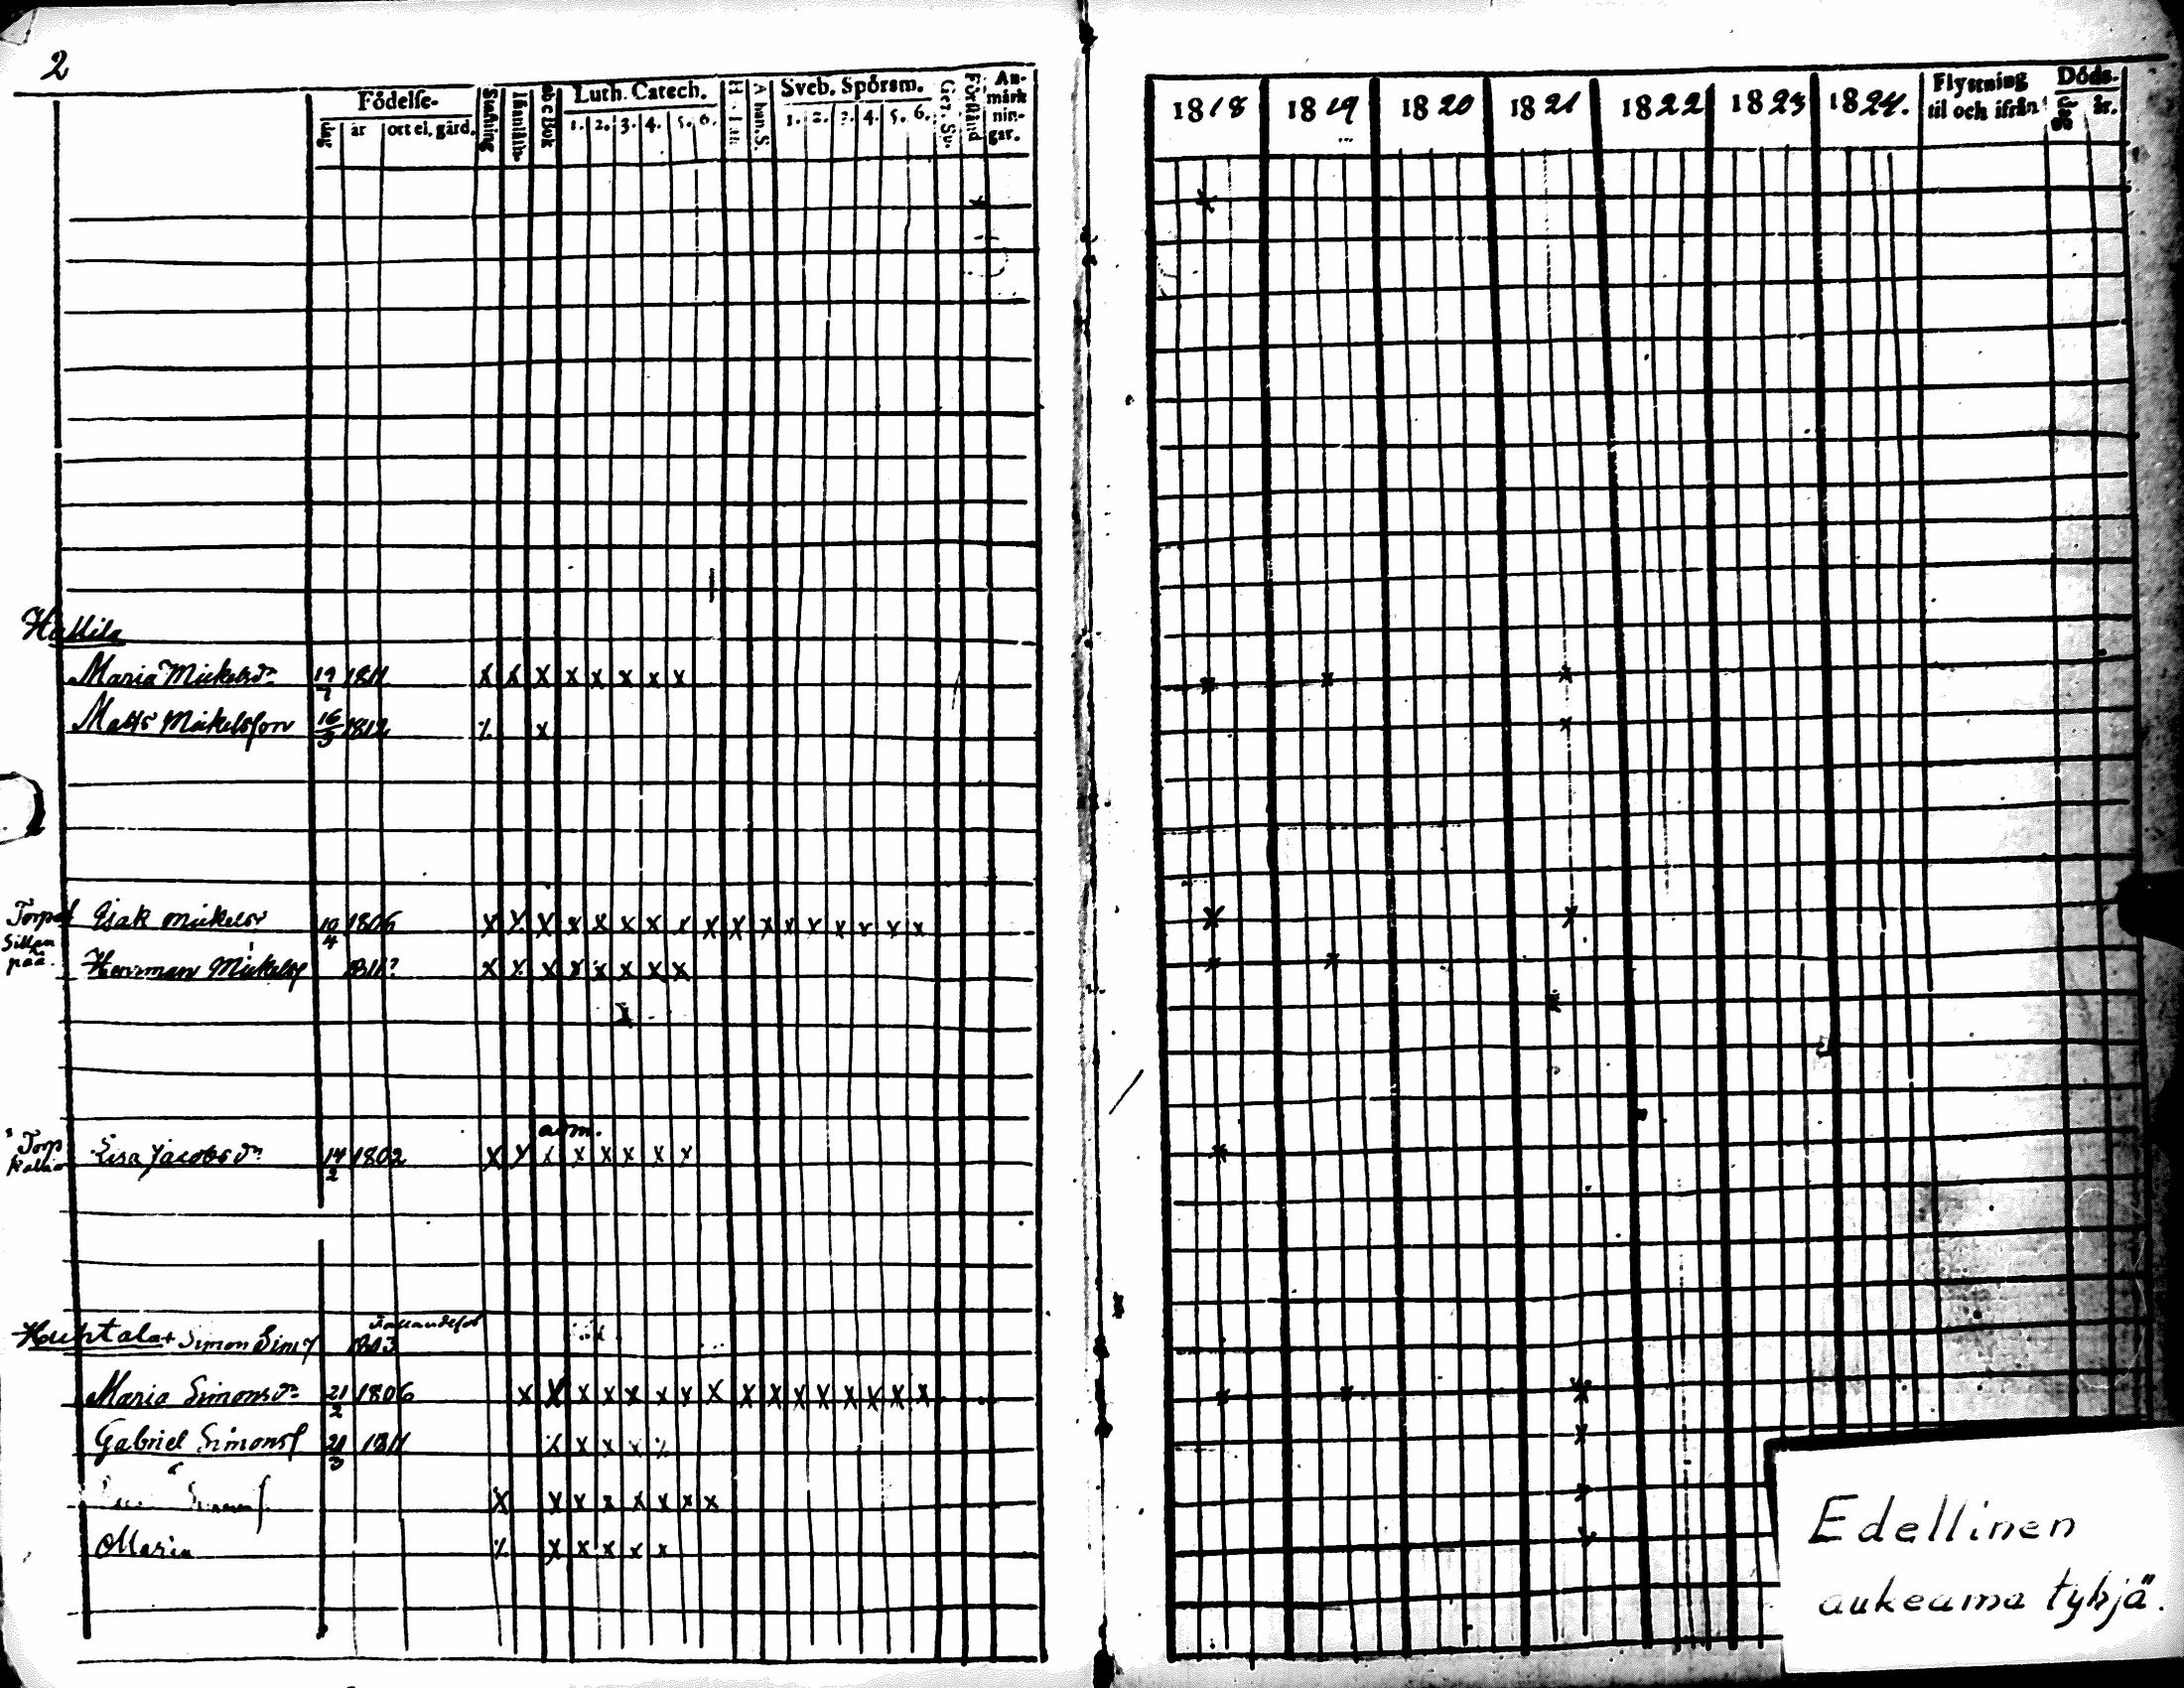 2
Födelse-
dag år ort el. gård.
Stafning
Innanläsn.
abc Bok
Luth. Catech.
1. 2. 3. 4. 5. 6.
A han. S.
Sveb. Spörsm.
1. 2. 3. 4. 5. 6.
Ger. Sv.
Förstånd
An-
märk
nin-
gar.
1818 1819 1820 1821 1822 1823 1824.
Flyttning
til och ifrån
Döds-
dag år.
Maria Mickelsdr 19/7 1811 x x x x x x x x
Matts Mickelsson 16/3 1812 x x
Torpet Isak Mickelss 10/4 1806 x x x x x x x x x x x x x x x x x
Sillan
pää. Herrman Mickelss 1811? x x x x x x x x
adm.
Torp Lisa Jacobsdr 14/2 1802 x x x x x x x x
Huhtala + Simon Sims 1803
Maria Simonsdr 21/2 1806 x x x x x x x x x x x x x x x x
Gabriel Simonss 21/3 1811 x x x x x
x x x x x x x x
Maria x x x x x x
Edellinen
aukeama tyhjä.